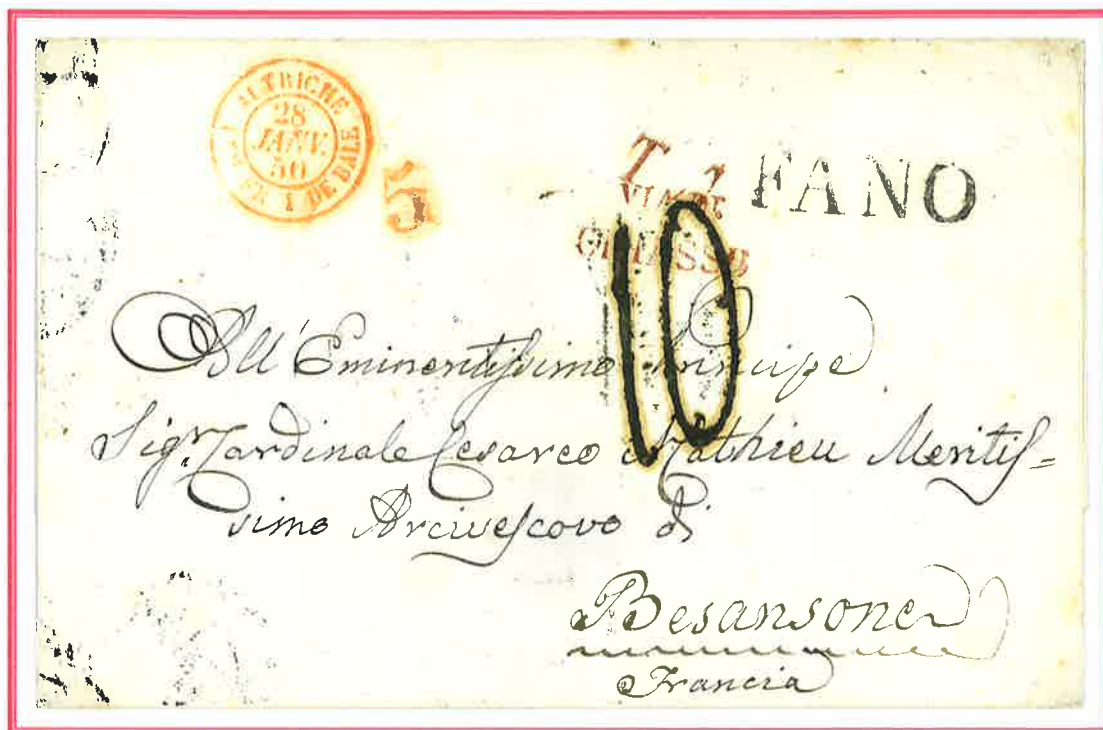 AUTRICHE
28
JANV.
50
1 DE BALE
5
T. 1
VIA DI
CHIASSO
FANO
10
All' Eminentissimo Principe
Sigr. Cardinale Cesareo Mathieu Meritis=
simo Arcivescovo di
Besansone
Francia